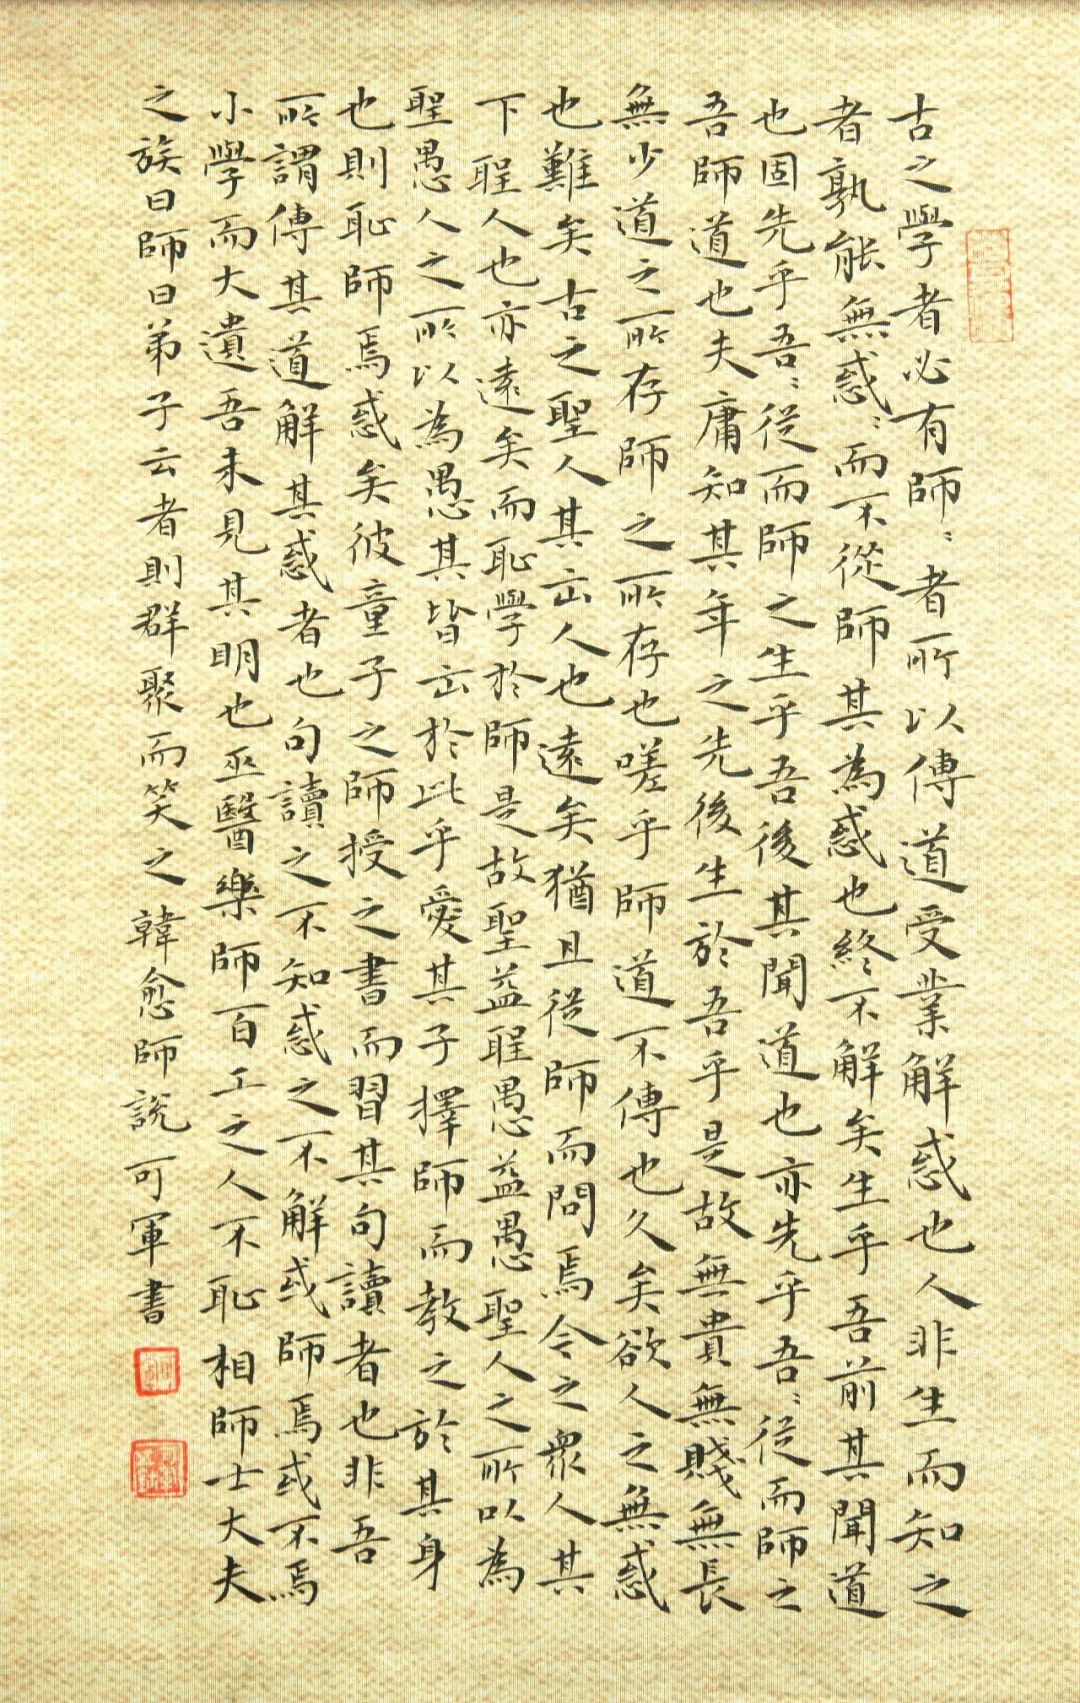 古之學者必有師〻者所以傳道受業解惑也人非生而知之
者孰能無惑〻而不從師其為惑也終不解矣生乎吾前其聞道
也固先乎吾〻從而師之生乎吾後其聞道也亦先乎吾〻從而師之
吾師道也夫庸知其年之先後生於吾乎是故無貴無賤無長
無少道之所存師之所存也嗟乎師道不傳也久矣欲人之無惑
也難矣古之聖人其出人也遠矣猶且從師而問焉今之衆人其
下聖人也亦遠矣而恥學於師是故聖益聖愚益愚聖人之所以為
聖愚人之所以為愚其皆出於此乎愛其子擇師而教之於其身
也則恥師焉惑矣彼童子之師授之書而習其句讀者也非吾
所謂傳其道解其惑者也句讀之不知惑之不解或師焉或不焉
小學而大遺吾未見其明也巫醫樂師百工之人不恥相師士大夫
之族曰師曰弟子云者則群聚而笑之 韓愈師說 可軍書